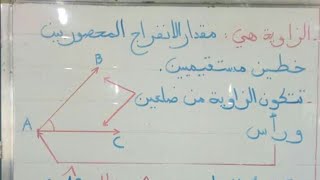 -الزاوية هي: مقدار الانفراج المحصور بين
خطين مستقيمين.
-تتكون الزاوية من ضلعين
و رأس
B
A
C